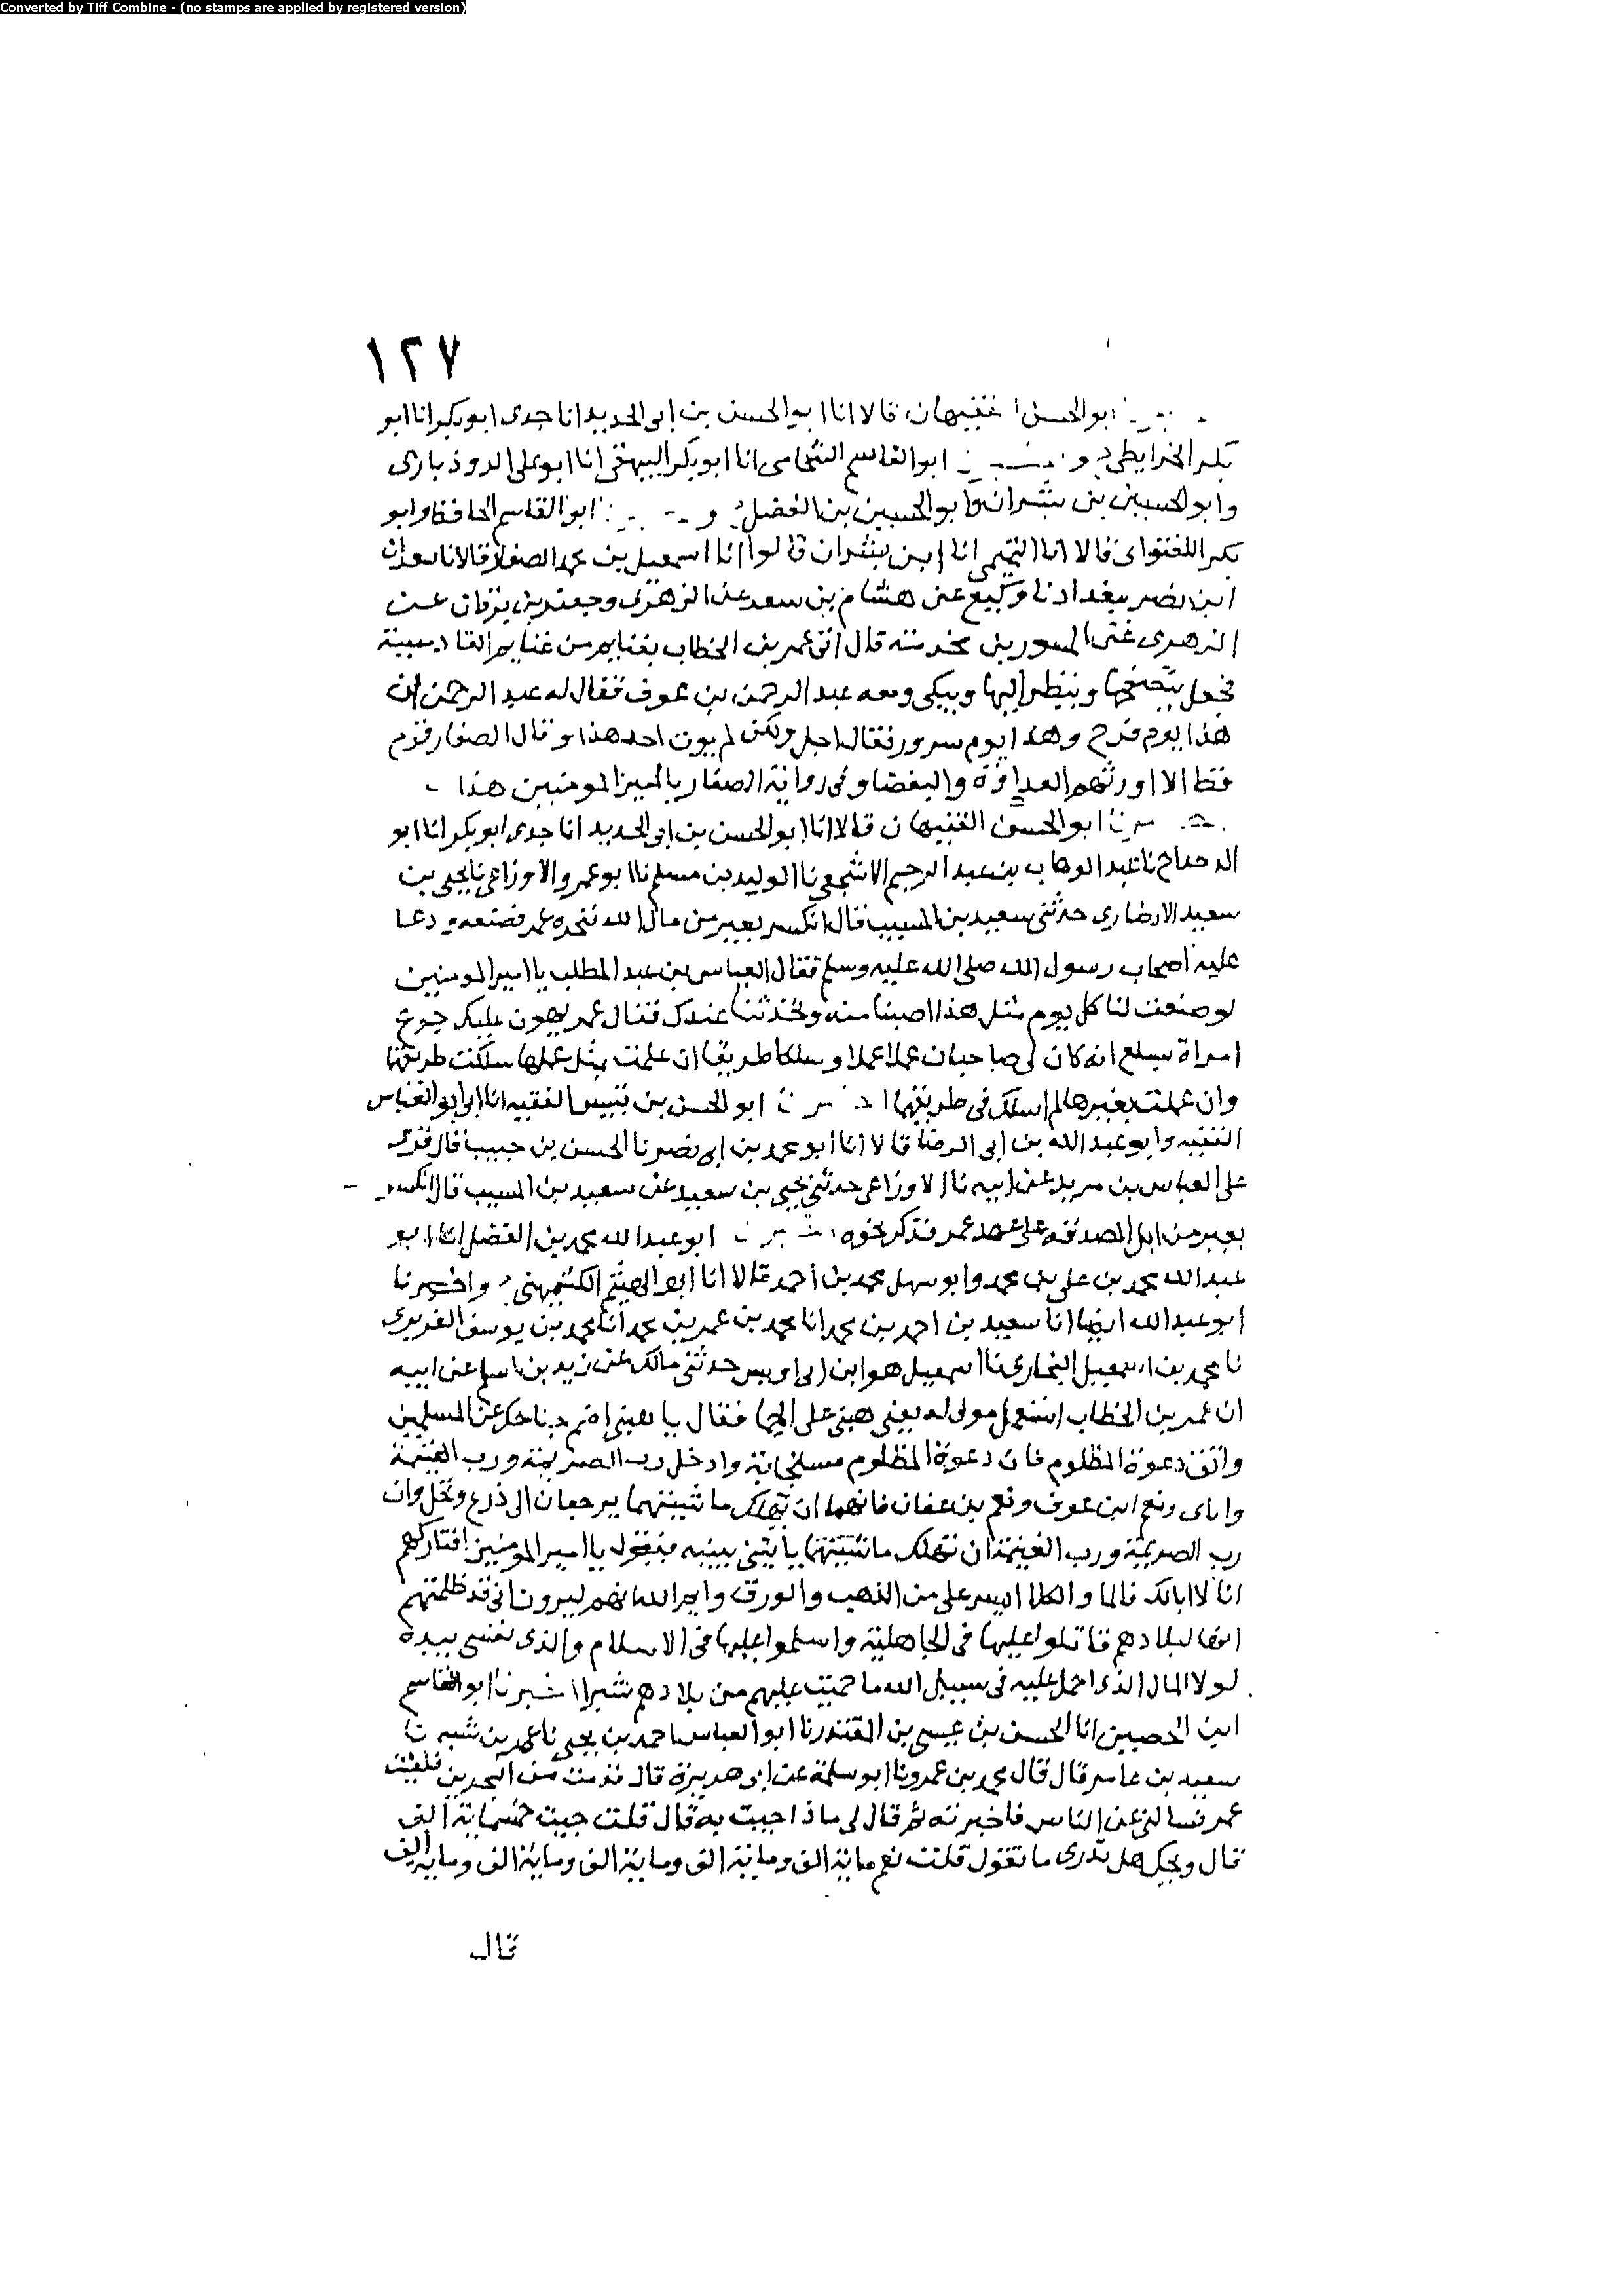 Converted by Tiff Combine - (no stamps are applied by registered version)
١٢٧
ابو الحسن الفقيهان قالا انا ابو الحسن بن ابى الحديد انا جدى ابو بكر انا ابو
بكر الخرايطى ح و ابو القاسم الشحامى انا ابو بكر البيهقى انا ابو على الروذبارى
وابو الحسين بن بشران وابو الحسين بن الفضل ح و ابو القاسم الحافظ وابو
بكر اللفتوانى قالا انا التميمى انا ابن بشران قالوا انا اسمعيل بن محمد الصفار قالا نا سعدان
ابن نصر ببغداد نا وكيع عن هشام بن سعد عن الزهرى وجعفر بن برقان عن
الزهرى عن المسور بن مخرمة قال اتى عمر بن الخطاب بغنايم من غنايم القادسية
فجعل يتصفحها وينظر اليها ويبكى ومعه عبد الرحمن بن عوف فقال له عبد الرحمن ان
هذا يوم فرح وهذا يوم سرور فقال اجل ولكن لم يوت احد هذا وقال الصفار قوم
قط الا اورثهم العداوة والبغضا وفى رواية الصفار يا امير المومنين هذا
ابو الحسن الفقيهان قالا انا ابو الحسن بن ابى الحديد انا جدى ابو بكر انا ابو
الدحداح نا عبد الوهاب بن عبد الرحيم الاشجعى نا الوليد بن مسلم نا ابو عمرو الاوزاعى نا يحيى بن
سعيد الانصارى حدثنى سعيد بن المسيب قال انكسر بعير من مال الله فنحره عمر فصنعه ودعا
عليه اصحاب رسول الله صلى الله عليه وسلم فقال العباس بن عبد المطلب يا امير المومنين
لو صنعت لنا كل يوم مثل هذا اصبنا منه وتحدثنا عندك فقال عمر يهون عليك جوع
امراة بسلع انه كان لى صاحبان عملا عملا وسلكا طريقا ان علمت بمثل عملها سلكت طريقها
وان عملت بغيرها لم اسلك فى طريقهما ابو الحسن بن قبيس الفقيه انا ابى ابو العباس
الفقيه وابو عبد الله بن ابى الرضا قالا انا ابو محمد بن ابى نصر نا الحسن بن حبيب قال قرى
على العباس بن مريد عن ابيه نا الاوزاعى حدثنى يحيى بن سعيد عن سعيد بن المسيب قال انكسر
بعير من ابل الصدقه على عهد عمر فذكر نحوه ابو عبد الله محمد بن الفضل انا ابو
عبد الله محمد بن على بن محمد وابو سهل محمد بن احمد قالا انا ابو الهيثم الكشميهنى ح واخبرنا
ابو عبد الله ايضا انا سعيد بن احمد بن محمد انا محمد بن عمر بن محمد انا محمد بن يوسف الفربرى
نا محمد بن اسمعيل البخارى نا اسمعيل هو ابن ابى اويس حدثنى مالك عن زيد بن اسلم عن ابيه
ان عمر بن الخطاب استعمل مولى له يعنى هنى على الحما فقال يا هنى اضمم جناحك عن المسلمين
واتق دعوة المظلوم فان دعوة المظلوم مستجابة وادخل رب الصريمة ورب الغنيمة
واياى ونعم ابن عوف ونعم بن عفان فانهما ان تهلك ماشيتهما يرجعان الى ذرع ونخل وان
رب الصريمة ورب الغنيمة ان تهلك ماشيتهما يأتينى ببنيه فيقول يا امير المومنين افتاركهم
انا لا ابالك فالما والكلا ايسر على من الذهب والورق وايم الله انهم ليرون انى قد ظلمتهم
انها لبلادهم قاتلوا عليها فى الجاهلية واسلموا عليها فى الاسلام والذى نفسى بيده
لولا المال الذى احمل عليه فى سبيل الله ما حميت عليهم من بلادهم شبرا اخبرنا ابو القاسم
ابن الحصين انا الحسن بن عيسى بن المقتدر نا ابو العباس احمد بن يحيى نا عمر بن شبه نا
سعيد بن عامر قال قال محمد بن عمرو نا ابو سلمة عن ابى هريرة قال قدمت من البحرين فلقيت
عمر فسالنى عن الناس فاخبرته ثم قال لى ماذا جيت به قال قلت جيت خمسماية الف
قال ويحك هل تدرى ما تقول قلت نعم ماية الف وماية الف وماية الف وماية الف وماية الف
قال